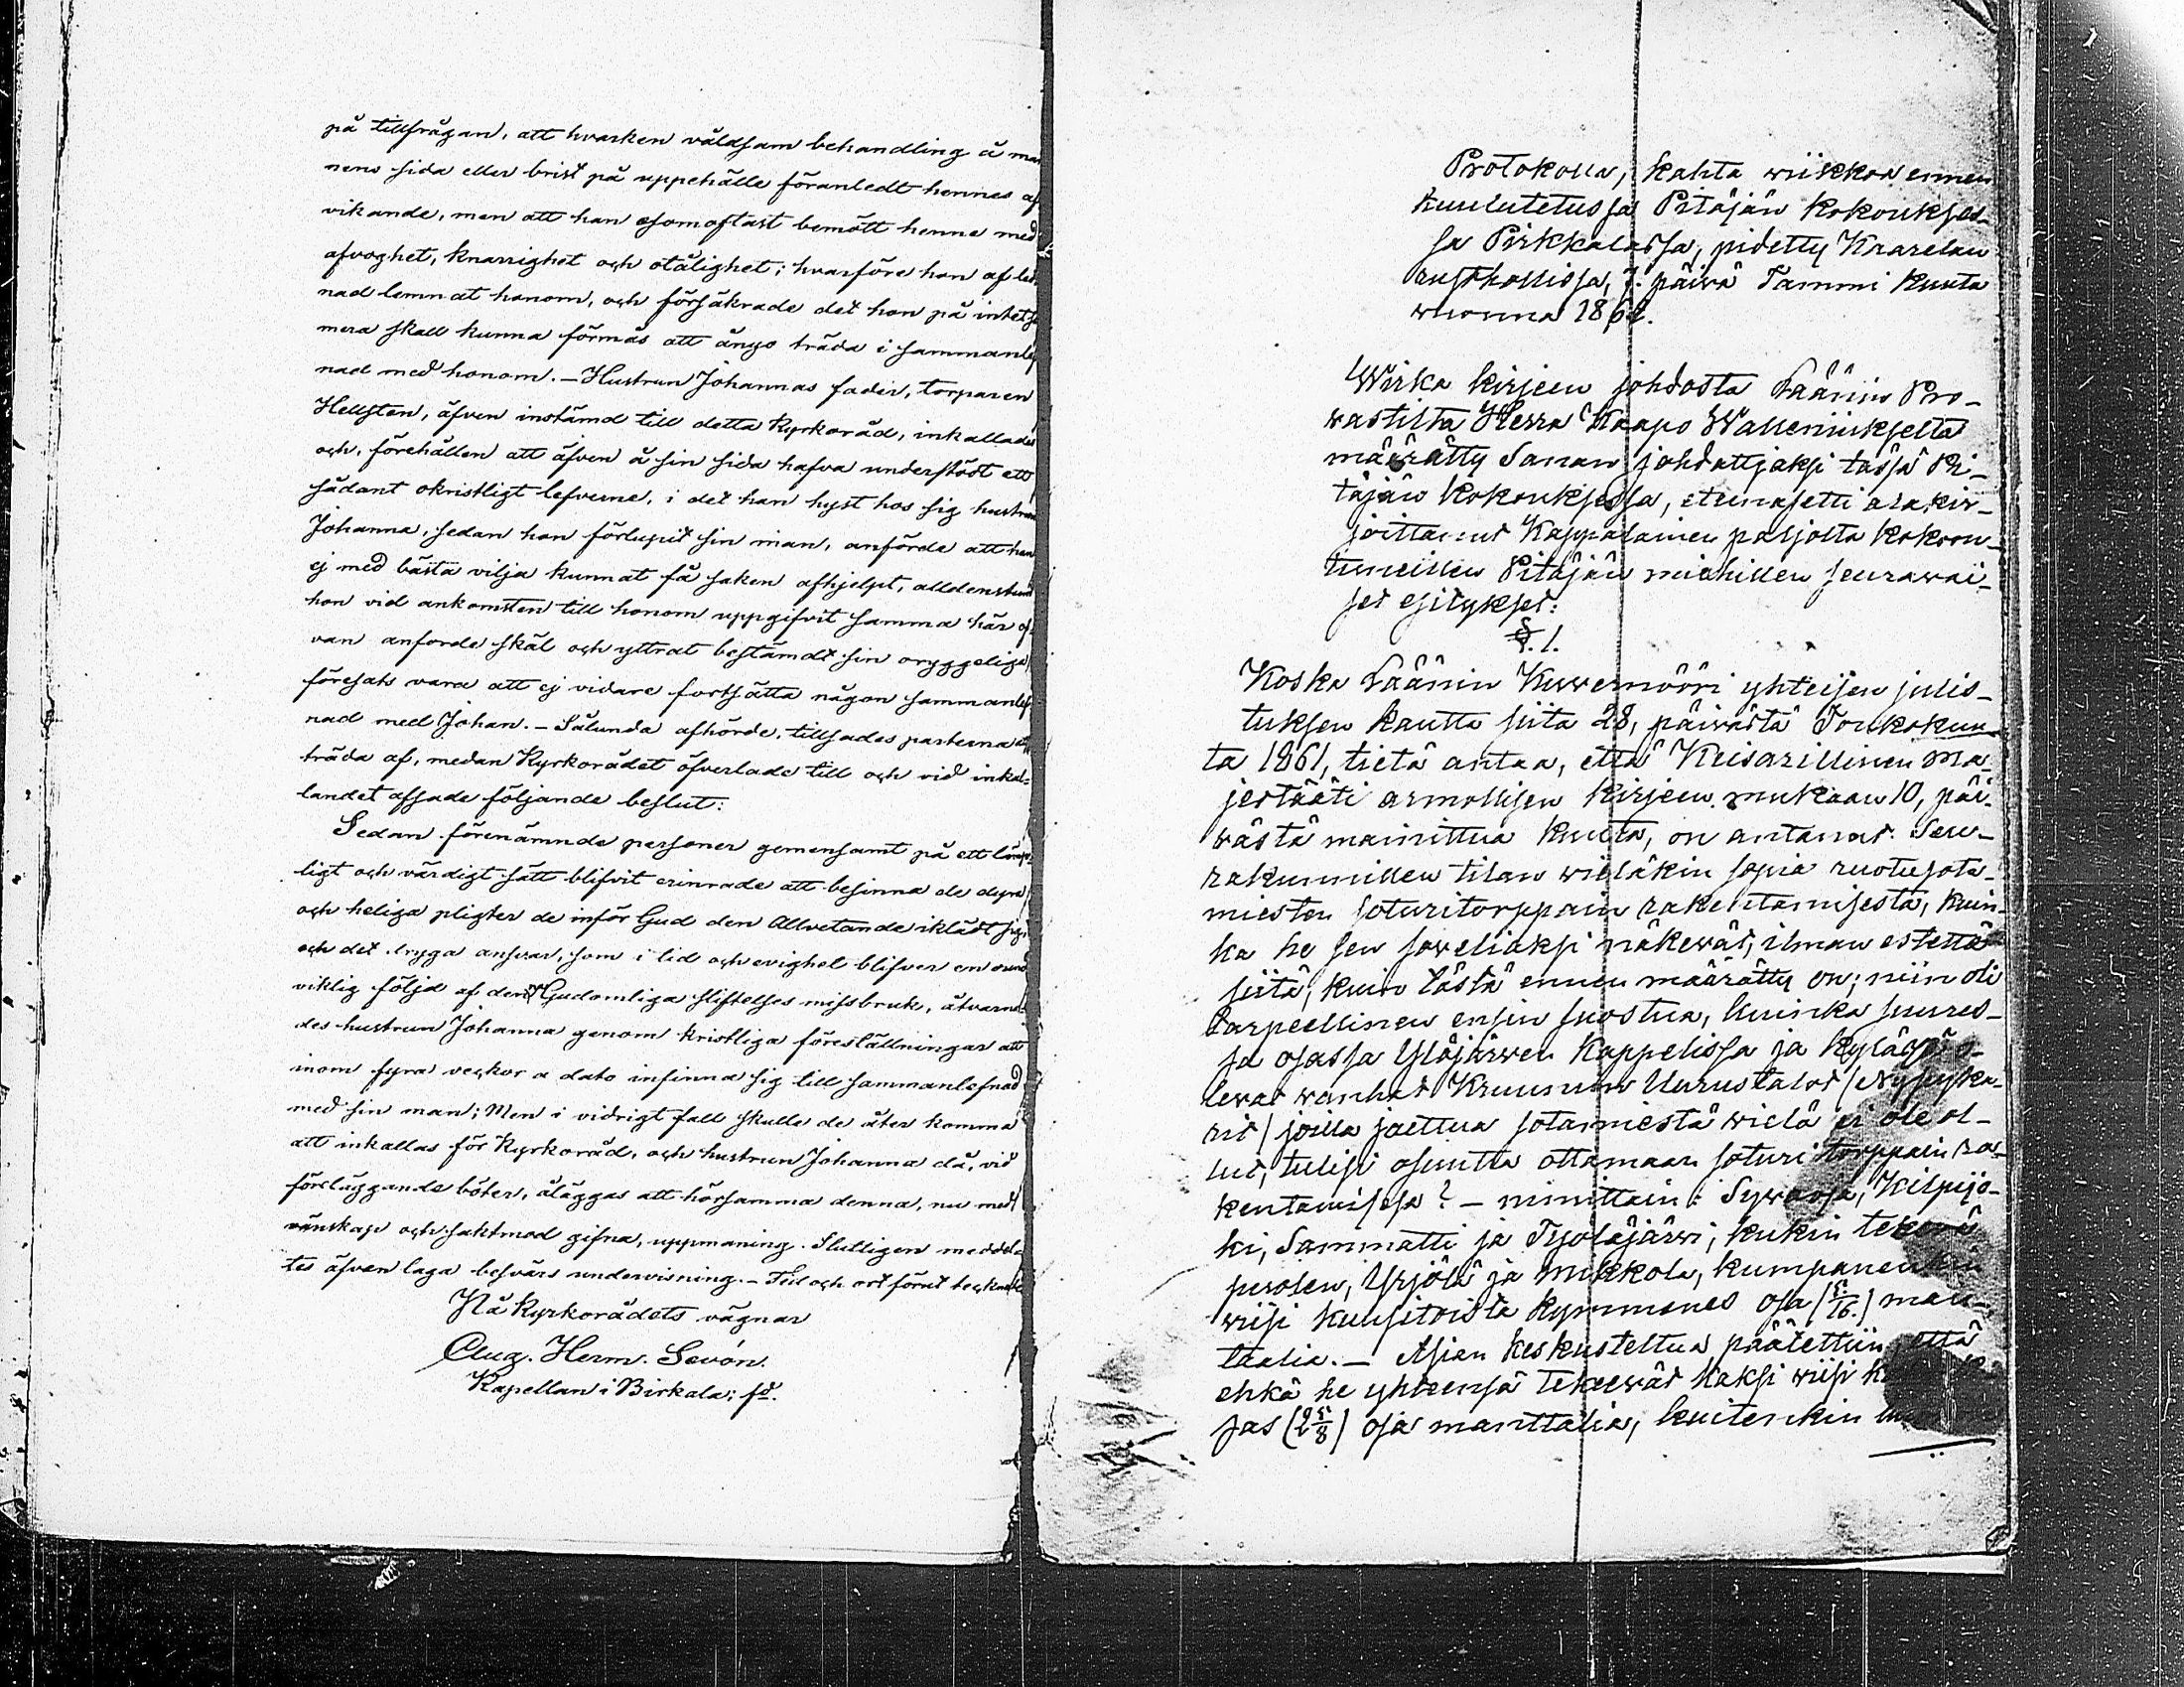 på tillfrågan, att hvarken våldsam behandling å man
nens sida eller brist på uppehälle föranledt hennes af
vikande, men att han esomoftast bemött henne med
afvoghet, knarrighet och otålighet; hvarföre hon af led
nad lemnat honom, och försäkrade det hon på intet
mera skall kunna förmås att ånyo träda i sammanlef
nad med honom. – Hustrun Johannas fader, torparen
Hellsten, äfven instämd till detta Kyrkoråd, inkallades
och, förehållen att äfven å sin sida hafva understödt ett
sådant okristligt lefverne, i det han hyst hos sig hustrun
Johanna, sedan hon förlupit sin man, anförde att han
ej med bästa vilja kunnat få saken afhjelpt, alldenstund
hon vid ankomsten till honom uppgifvit samma här of
van anförde skäl och yttrat bestämdt sin oryggeliga
föresats vara att ej vidare fortsätta någon sammanlef
nad med Johan. – Sålunda afhörde, tillsades parterna att
träda af, medan Kyrkorådet öfverlade till och vid inkal-
landet afsade följande beslut:
Sedan förenämnde personer gemensamt på ett lämp
ligt och värdigt sätt blifvit erinrade att besinna de dyra
och heliga pligter de inför Gud den Allvetande iklädt sig
och det tryga ansvar, som i tid och evighet blifver en und
viklig följd af den Gudomliga stiftelses missbruk, åtvarna-
des hustrun Johanna genom kristliga föreställningar att
inom fyra veckor a dato infinna sig till sammanlefnad
med sin man; Men i vidrigt fall skulle de åter komma
att inkallas för Kyrkoråd, och hustrun Johanna då, vid
föreläggande böter, åläggas att hörsamma denna, nu med
vänskap och saktmod gifna, uppmaning. Slutligen meddela
tes äfven laga besvärs undervisning. – Tid och ort förut teckna
På Kyrkorådets vägnar
Aug. Herm. Sevón.
Kapellan i Birkala; fd.
Protokolla, kahta wiikkoa ennen
kuulutetussa Pitäjän kokoukses-
sa Pirkkalassa, pidetty Kaarelan
rustthollissa, 7. päivä Tammi kuuta
wuonna 1862.
Wirka kirjeen johdosta Läänin Pro-
wastilta Herra Kaapo Walleniukselta
määrätty Sanan johdattjaksi tässä Pi-
täjän kokouksessa, etunasetti alakir-
joittanut Kappalainen paljolta kokoon-
tuneillen Pitäjän miehillen seurawai-
set esitykset:
§. 1.
Koska Läänin Kuwernööri yhteisen julis-
tuksen kautta siitä 28, päiwästä Toukokuu-
ta 1861, tietä antaa, että Keisarillinen Ma
jestääti armollisen kirjeen mukaan 10, päi-
wästä mainittua kuuta, on antanut Seu-
rakunnillen tilan wieläkin sopia ruotusota-
miesten soturitorppain rakentamisesta, kuin-
ka he sen soweliaksi näkewät, ilman estettä
siitä, kuin tästä ennen määrätty on; niin oli
tarpeellinen ensin suostua, kuinka suures-
sa osassa Ylöjärwen Kappelissa ja kyläsä o-
lewat wanhat Kruunun Uurustalot / Nypyka-
rit / joilla jaettua sotamiestä wielä ei ole ol-
lut, tulisi osuutta ottamaan soturi torppain ra-
kentamisesa? – nimittäin: Sywässä, Kilpijo-
ki, Sammatti ja Tyoläjärwi, kukin tekewä
puolen, Yrjölä ja Mikkola, kumpanenkin
wiisi kuusitoista kymmenes osa (5/16.) man-
taalia. – Asian keskusteltua päätettiin, että
ehkä he yhteensä tekeewät kaksi wiisi
sas (2 5/8) osa manttalia, kuitenkin